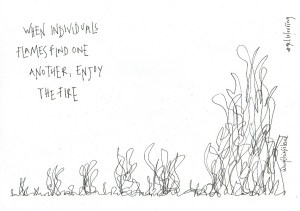 WHEN INDIVIDUALS
FLAMES FIND ONE
ANOTHER, ENJOY
THE FIRE